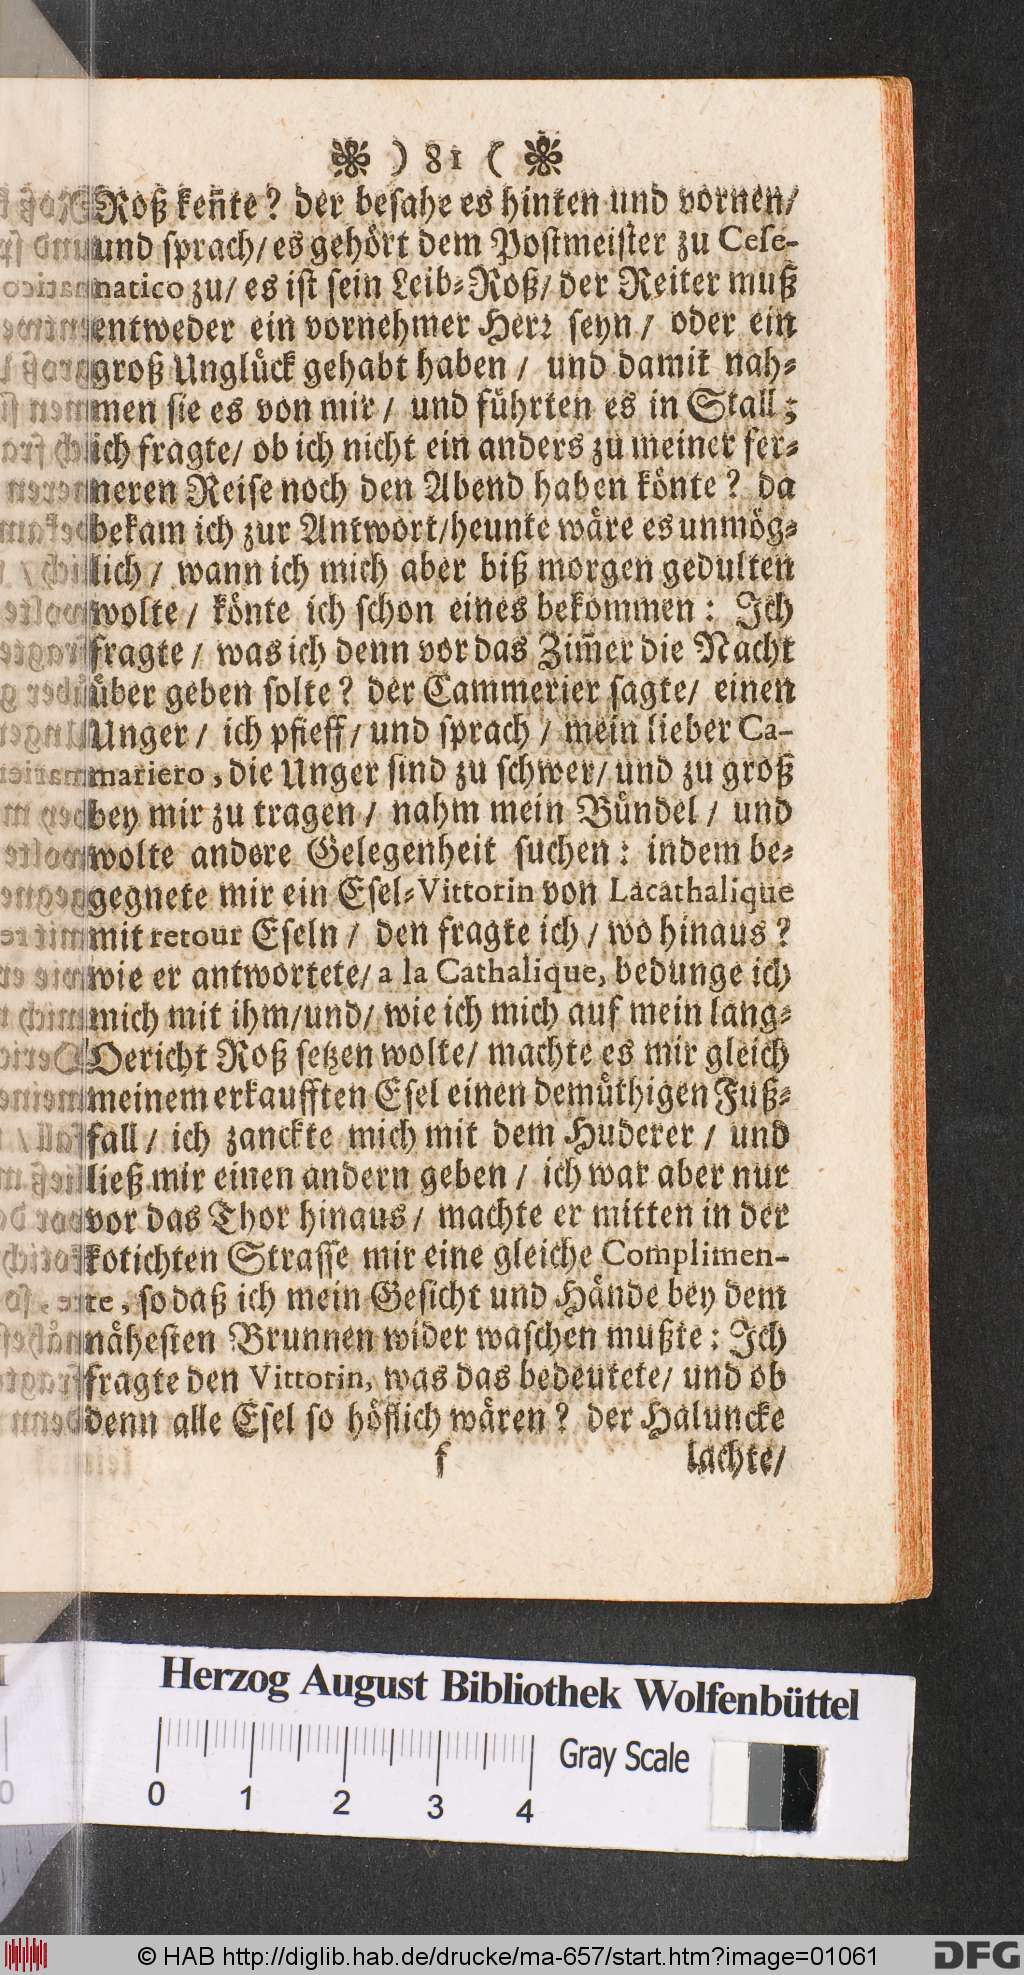 ❀ ) 81 ( ❀
Roß keñte? der besahe es hinten und vornen/
und sprach/ es gehört dem Postmeister zu Cese-
natico zu/ es ist sein Leib-Roß/ der Reiter muß
entweder ein vornehmer Herꝛ seyn/ oder ein
groß Unglück gehabt haben/ und damit nah-
men sie es von mir/ und führten es in Stall;
ich fragte/ ob ich nicht ein anders zu meiner fer-
neren Reise noch den Abend haben könte? da
bekam ich zur Antwort/heunte wäre es unmög-
lich/ wann ich mich aber biß morgen gedulten
wolte/ könte ich schon eines bekommen: Ich
fragte/ was ich denn vor das Zim̃er die Nacht
über geben solte? der Cammerier sagte/ einen
Unger/ ich pfieff/ und sprach/ mein lieber Ca-
mariero, die Unger sind zu schwer/ und zu groß
bey mir zu tragen/ nahm mein Bündel/ und
wolte andere Gelegenheit suchen: indem be-
gegnete mir ein Esel-Vittorin von Lacathalique
mit retour Eseln/ den fragte ich/ wo hinaus?
wie er antwortete/ a la Cathalique, bedunge ich
mich mit ihm/und/ wie ich mich auf mein lang-
Oericht Roß setzen wolte/ machte es mir gleich
meinem erkaufften Esel einen demüthigen Fuß-
fall/ ich zanckte mich mit dem Huderer/ und
ließ mir einen andern geben/ ich war aber nur
vor das Thor hinaus/ machte er mitten in der
kotichten Strasse mir eine gleiche Complimen-
te, so daß ich mein Gesicht und Hände bey dem
nähesten Brunnen wider waschen mußte: Ich
fragte den Vittorin, was das bedeutete/ und ob
denn alle Esel so höflich wären? der Haluncke
f lachte/
Herzog August Bibliothek Wolfenbüttel
0 1 2 3 4 Gray Scale
© HAB http://diglib.hab.de/drucke/ma-657/start.htm?image=01061 DFG